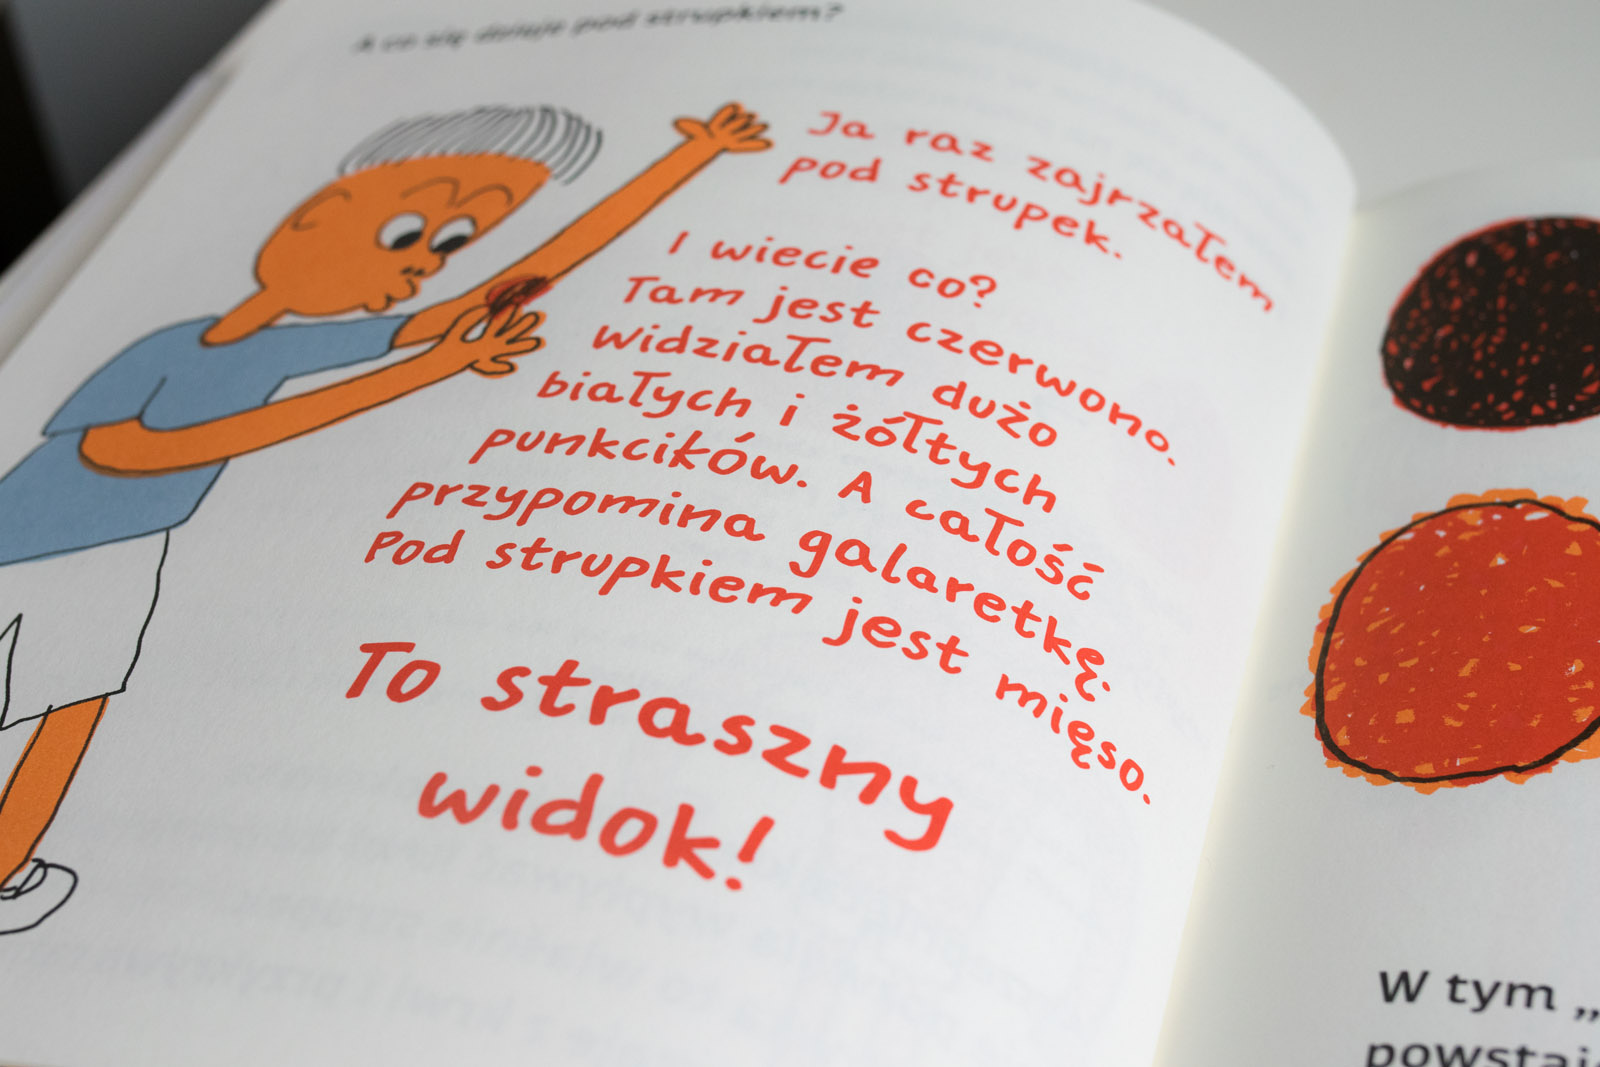 A co się dzieje pod strupkiem?
Ja raz zajrzałem
pod strupek.
I wiecie co?
Tam jest czerwono.
Widziałem dużo
białych i żółtych
punkcików. A całość
przypomina galaretkę.
Pod strupkiem jest mięso.
To straszny
widok!
W tym „